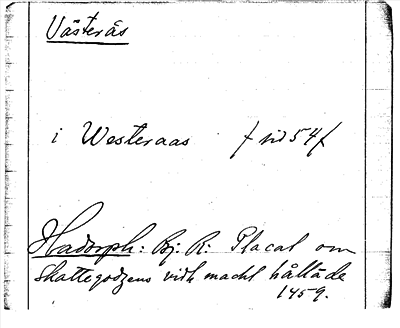 Västerås
i Westeraas f sid 54 f
Hadorph: Bj: R: Placat om
skattegodzens vidh macht hållāde
1459.